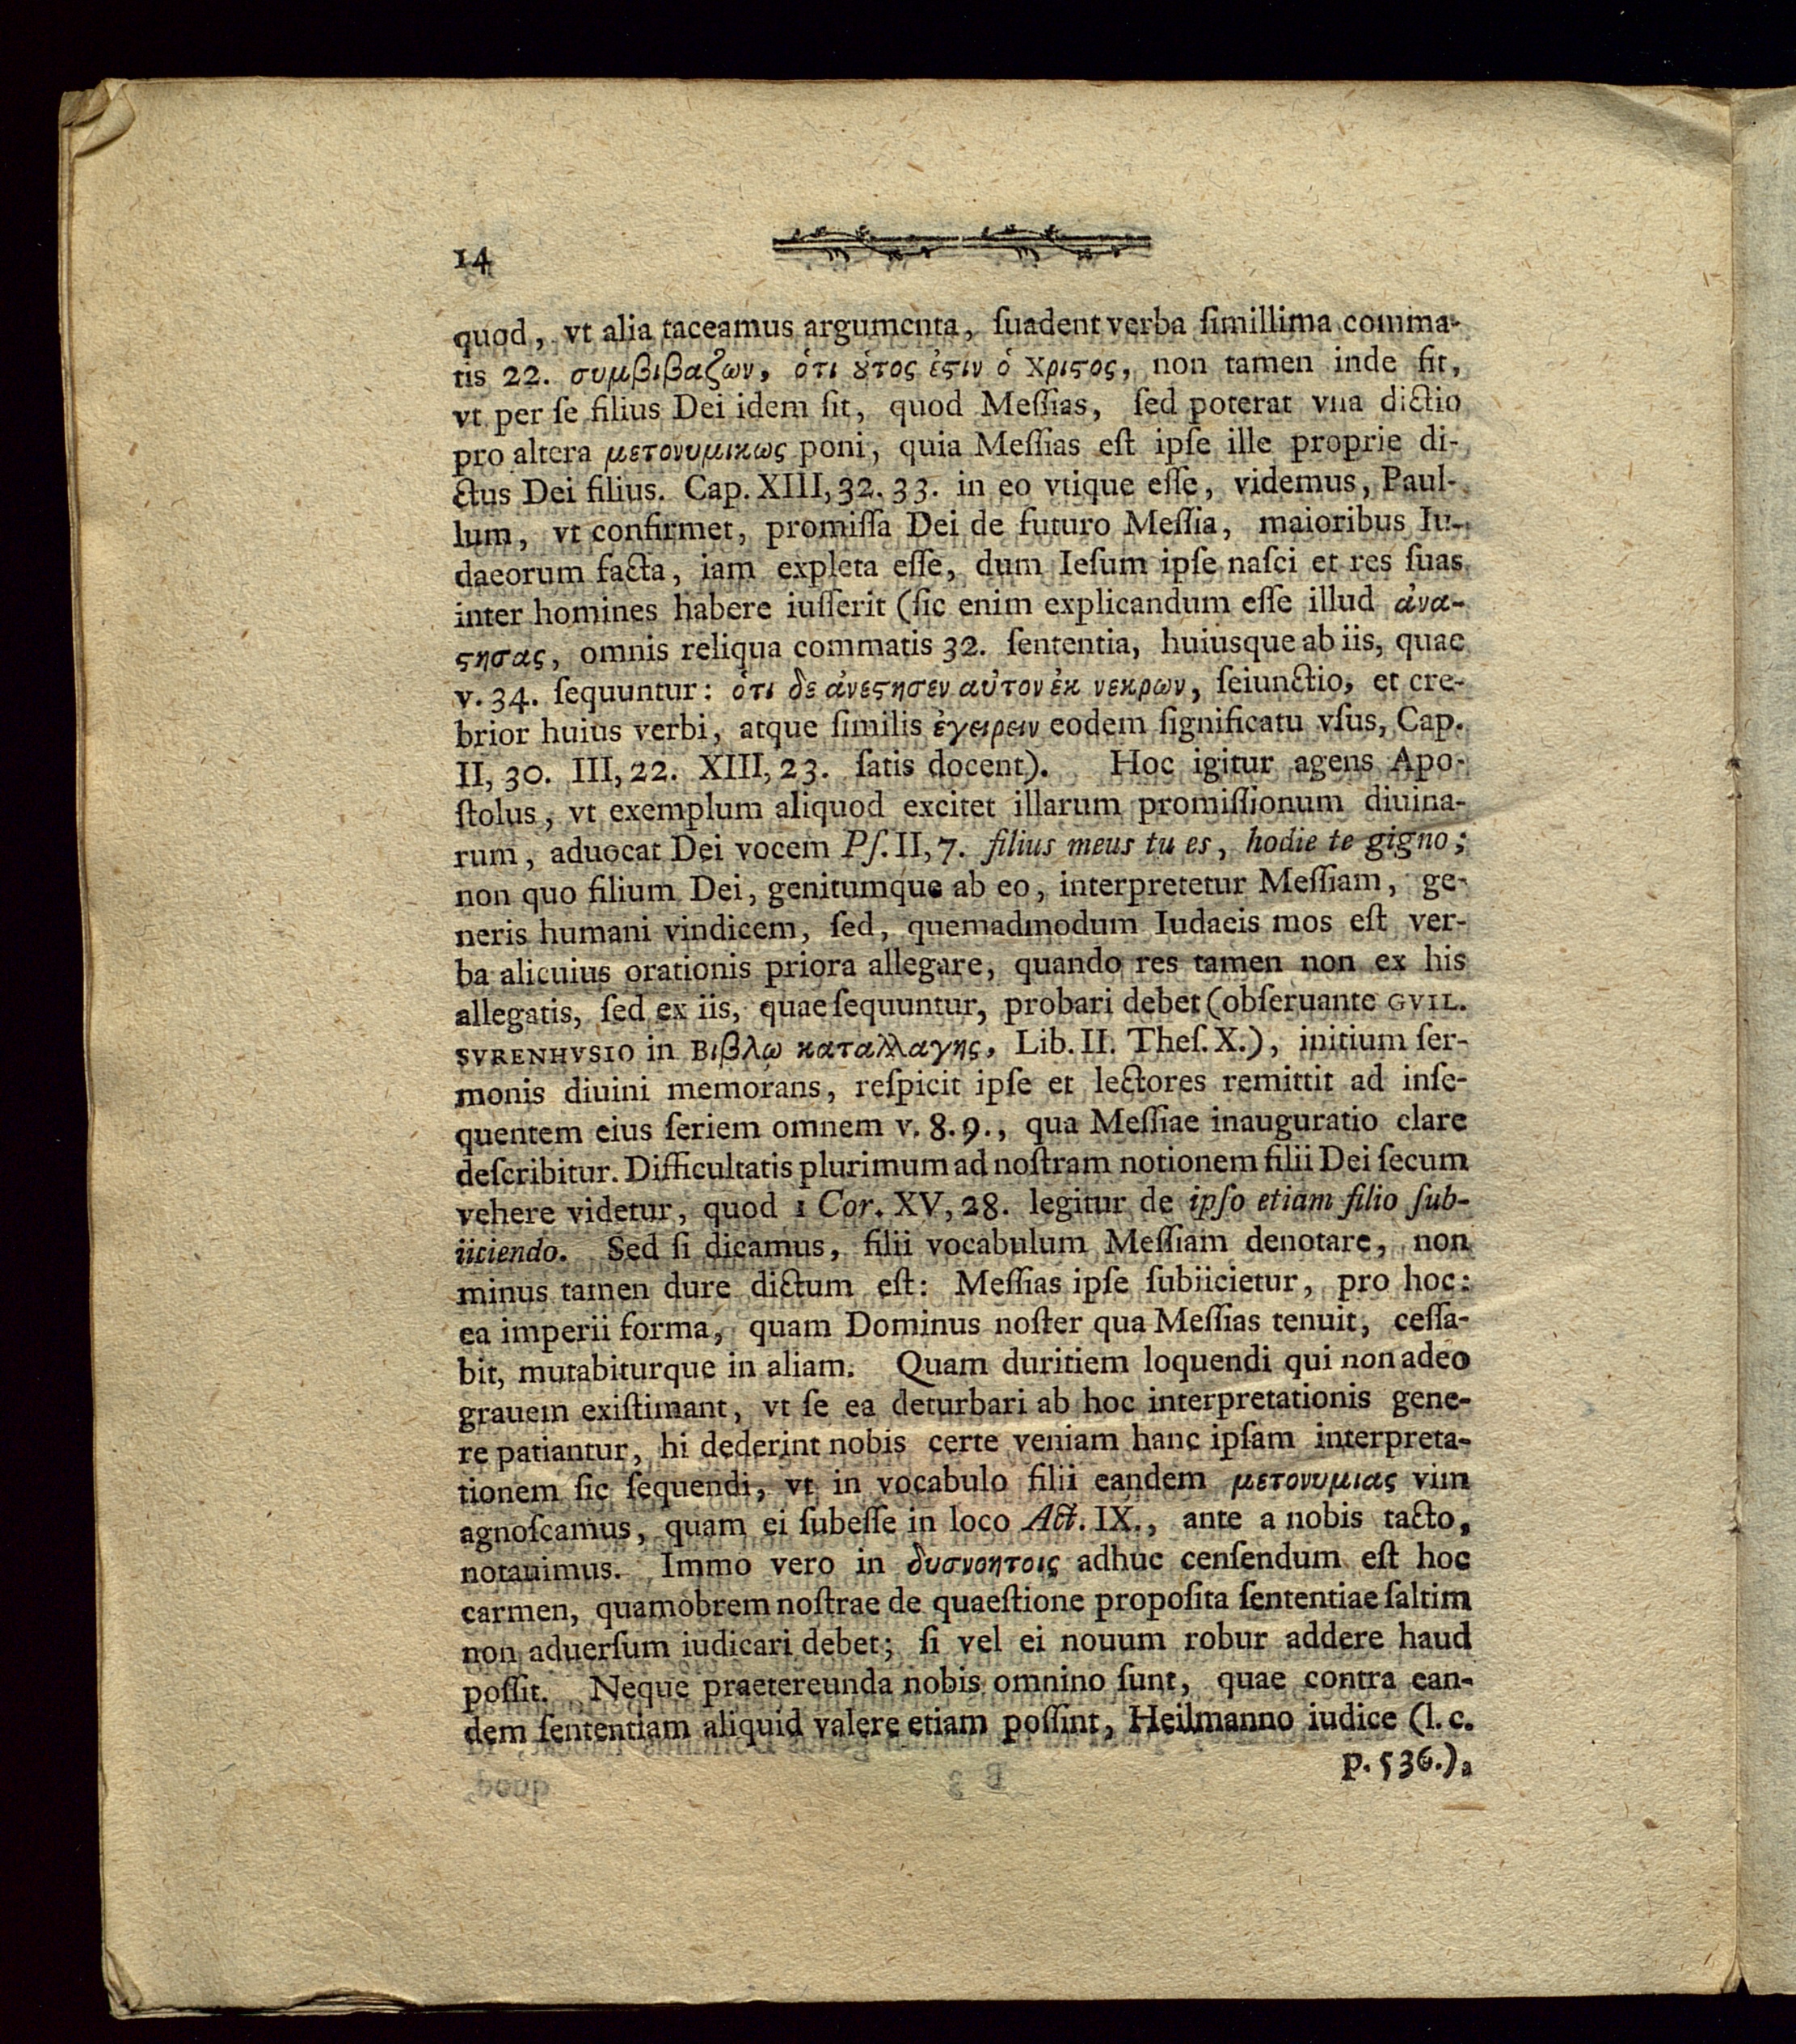 14
quod, vt alia taceamus argumenta, ſuadent verba ſimillima comma-
tis 22. συμβιβαζων, ὁτι ȣ̔τος ἐϛιν ὁ Χριϛος, non tamen inde fit,
vt per ſe filius Dei idem ſit, quod Meſſias, ſed poterat vna dictio
pro altera μετονυμικως poni, quia Meſſias eſt ipſe ille proprie di-
ctus Dei filius. Cap. XIII, 32. 33. in eo vtique eſſe, videmus, Paul-
lum, vt confirmet, promiſſa Dei de futuro Meſſia, maioribus Iu-
daeorum facta, iam expleta eſſe, dum Ieſum ipſe naſci et res ſuas
inter homines habere iuſſerit (ſic enim explicandum eſſe illud ἀνα-
ϛησας, omnis reliqua commatis 32. ſententia, huiusque ab iis, quae
v. 34. ſequuntur: ὁτι δε ἀνεϛησεν αὐτον ἐκ νεκρων, ſeiunctio, et cre-
brior huius verbi, atque ſimilis ἐγειρειν eodem ſignificatu vſus, Cap.
II, 30. III, 22. XIII, 23. ſatis docent). Hoc igitur agens Apo-
ſtolus, vt exemplum aliquod excitet illarum promiſſionum diuina-
rum, aduocat Dei vocem Pſ. II, 7. filius meus tu es, hodie te gigno;
non quo filium Dei, genitumque ab eo, interpretetur Meſſiam, ge-
neris humani vindicem, ſed, quemadmodum Iudaeis mos eſt ver-
ba alicuius orationis priora allegare, quando res tamen non ex his
allegatis, ſed ex iis, quae ſequuntur, probari debet (obſeruante GVIL.
SVRENHVSIO in Βιβλῳ καταλλαγης, Lib. II. Theſ. X.), initium ſer-
monis diuini memorans, reſpicit ipſe et lectores remittit ad inſe-
quentem eius ſeriem omnem v. 8. 9., qua Meſſiae inauguratio clare
deſcribitur. Difficultatis plurimum ad noſtram notionem filii Dei ſecum
vehere videtur, quod 1 Cor. XV, 28. legitur de ipſo etiam filio ſub-
iiciendo. Sed ſi dicamus, filii vocabulum Meſſiam denotare, non
minus tamen dure dictum eſt: Meſſias ipſe ſubiicietur, pro hoc:
ea imperii forma, quam Dominus noſter qua Meſſias tenuit, ceſſa-
bit, mutabiturque in aliam. Quam duritiem loquendi qui non adeo
grauem exiſtimant, vt ſe ea deturbari ab hoc interpretationis gene-
re patiantur, hi dederint nobis certe veniam hanc ipſam interpreta-
tionem ſic ſequendi, vt in vocabulo filii eandem μετονυμιας vim
agnoſcamus, quam ei ſubeſſe in loco Act. IX., ante a nobis tacto,
notauimus. Immo vero in δυσνοητοις adhuc cenſendum eſt hoc
carmen, quamobrem noſtrae de quaeſtione propoſita ſententiae ſaltim
non aduerſum iudicari debet; ſi vel ei nouum robur addere haud
poſſit. Neque praetereunda nobis omnino ſunt, quae contra ean-
dem ſententiam aliquid valere etiam poſſint, Heilmanno iudice (l. c.
p. 536.),